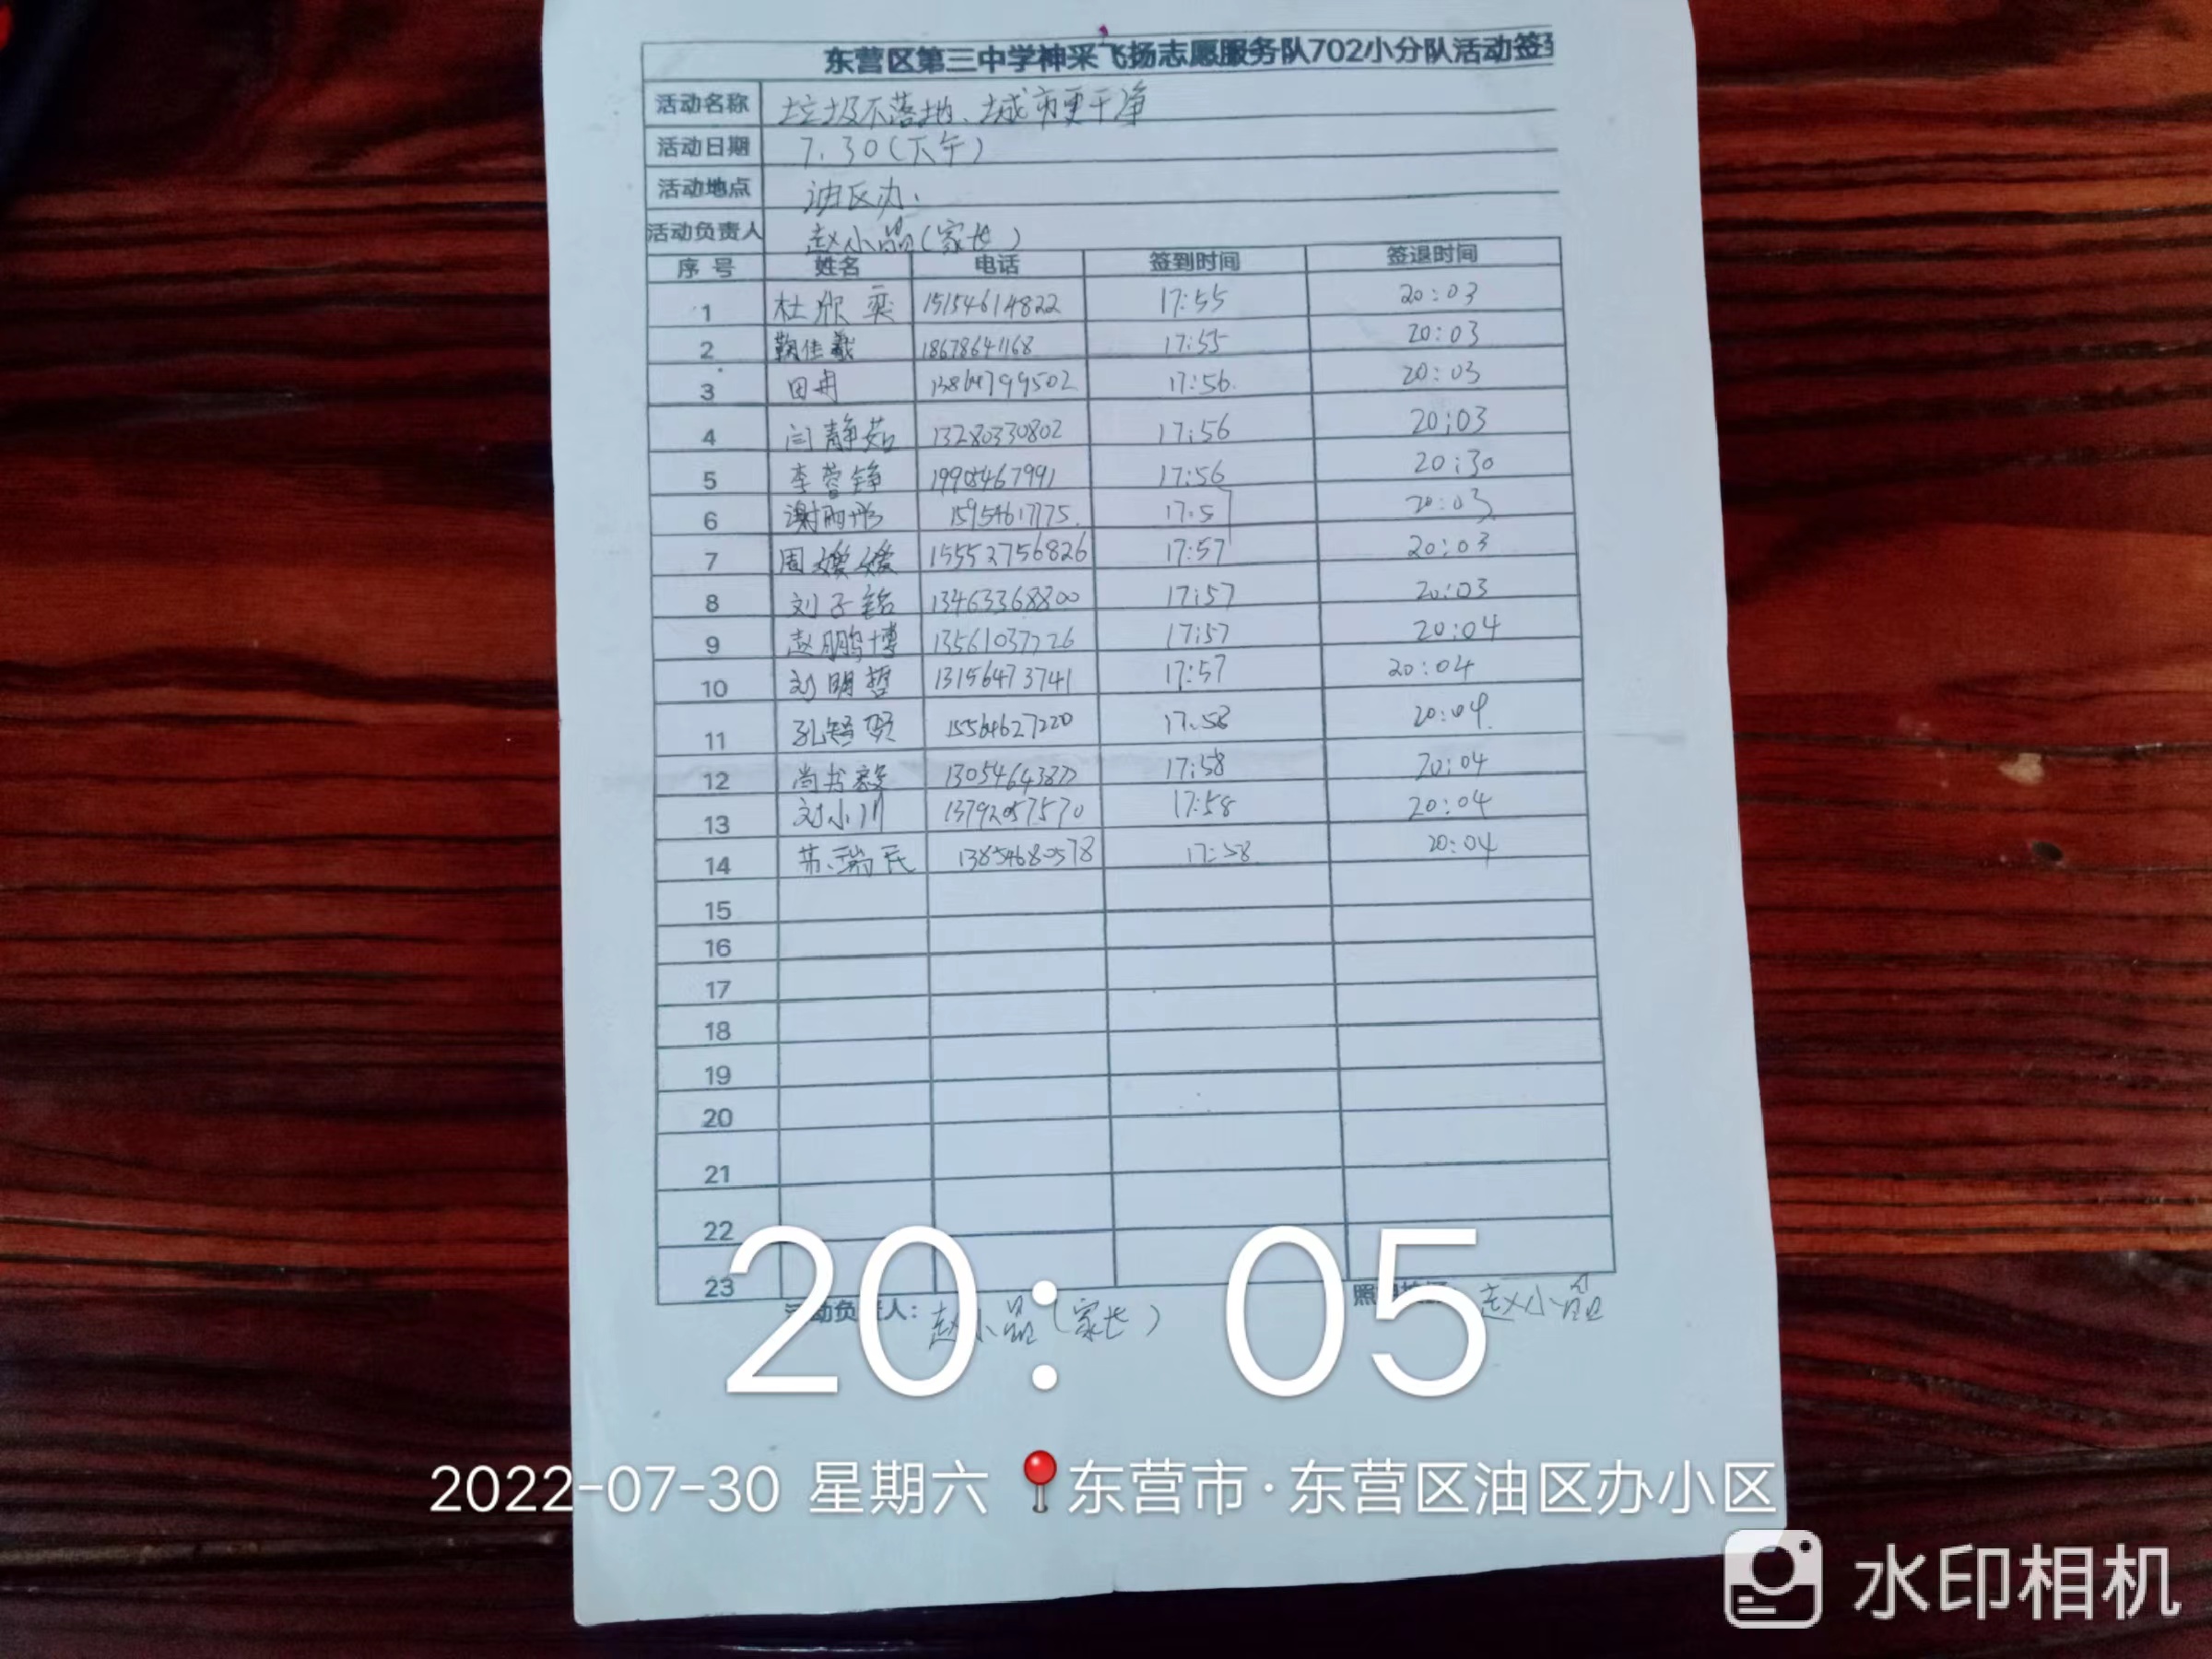 东营区第三中学神采飞扬志愿服务队702小分队活动签
活动名称 垃圾不落地、城市更干净
活动日期 7.30(下午)
活动地点 油区办.
活动负责人 赵小晶(家长)
序号 姓名 电话 签到时间 签退时间
1 杜欣奕 15154614822 17:55 20:03
2 鞠佳羲 18678641168 17:55 20:03
3 田冉 13864799502 17:56 20:03
4 闫静茹 13280330802 17:56 20:03
5 李蓉铮 17:56 20:30
6 谢雨彤 15954617775 17:57 20:03
7 周媛媛 15552756826 17:57 20:03
8 刘子铭 13463368800 17:57 20:03
9 赵鹏博 13561037226 17:57 20:04
10 刘明哲 13156473741 17:57 20:04
11 孔贤 15564627220 17:58 20:04
12 尚书毅 17:58 20:04
13 刘小川 13792057570 17:58 20:04
14 苏瑞民 13854680578 17:58 20:04
15
16
17
18
19
20
21
22
23
活动负责人: 赵小晶(家长) 赵小晶
20:05
2022-07-30 星期六 东营市·东营区油区办小区
水印相机